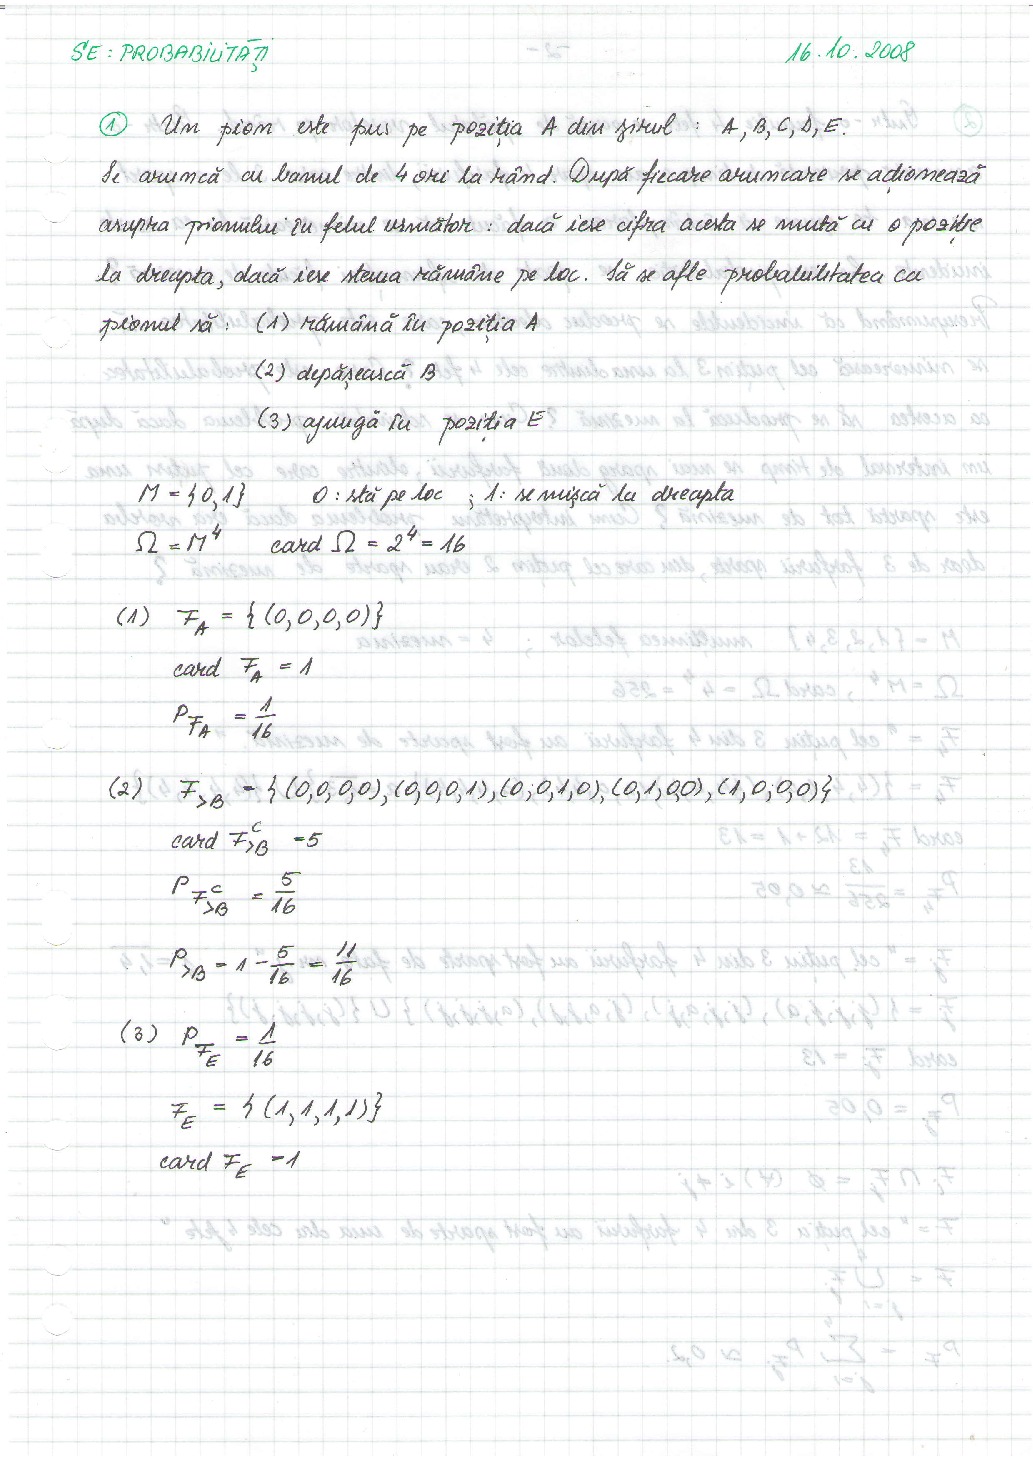 SE: PROBABILITĂȚI 16.10.2008
① Un pion este pus pe poziția A din șirul : A, B, C, D, E.
Se aruncă cu banul de 4 ori la rând. După fiecare aruncare se acționează
asupra pionului în felul următor : dacă iese cifra acesta se mută cu o poziție
la dreapta, dacă iese stema rămâne pe loc. Să se afle probabilitatea ca
pionul să : (1) rămână în poziția A
(2) depășească B
(3) ajungă în poziția E
M = {0,1} 0 : stă pe loc ; 1: se mișcă la dreapta
Ω = M⁴ card Ω = 2⁴ = 16
(1) F_A = {(0,0,0,0)}
card F_A = 1
P_{F_A} = 1/16
(2) F_{>B} = {(0,0,0,0),(0,0,0,1),(0,0,1,0),(0,1,0,0),(1,0,0,0)}
card F_{>B}^C = 5
P_{F_{>B}^C} = 5/16
P_{>B} = 1 - 5/16 = 11/16
(3) P_{F_E} = 1/16
F_E = {(1,1,1,1)}
card F_E = 1